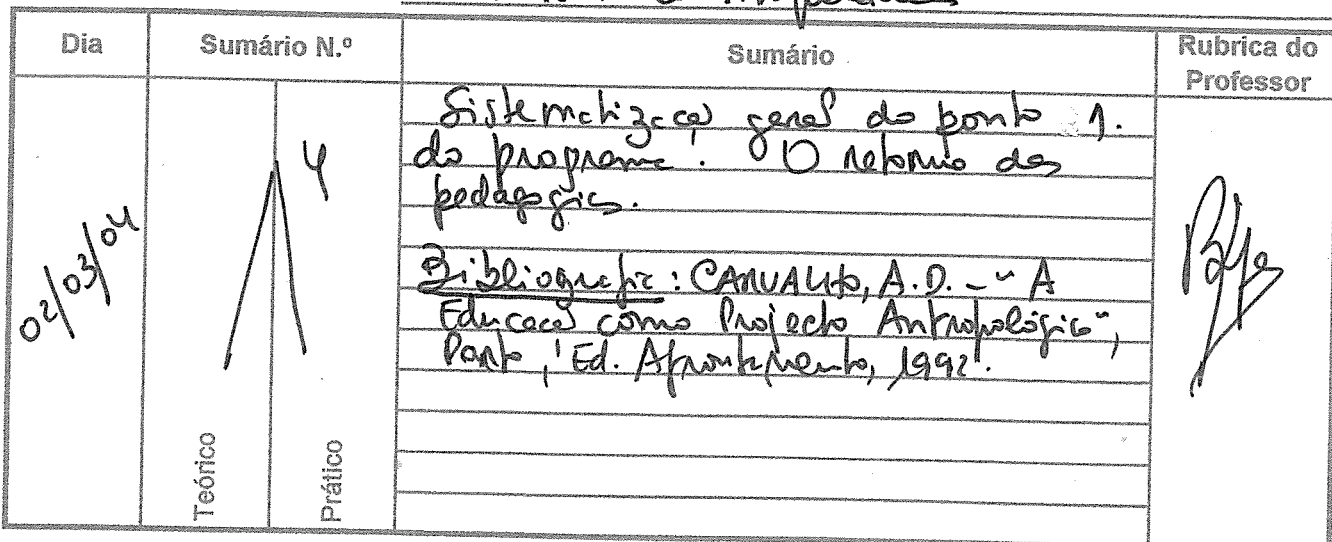 Dia
Sumário N.º
Sumário
Rubrica do
Professor
02/03/04
4
Teórico
Prático
Sistematização geral do ponto 1.
do programa. O retorno das
pedagogias.
Bibliografia: CARVALHO, A.D. - "A
Educação como Projecto Antropológico",
Porto, Ed. Afrontamento, 1992.